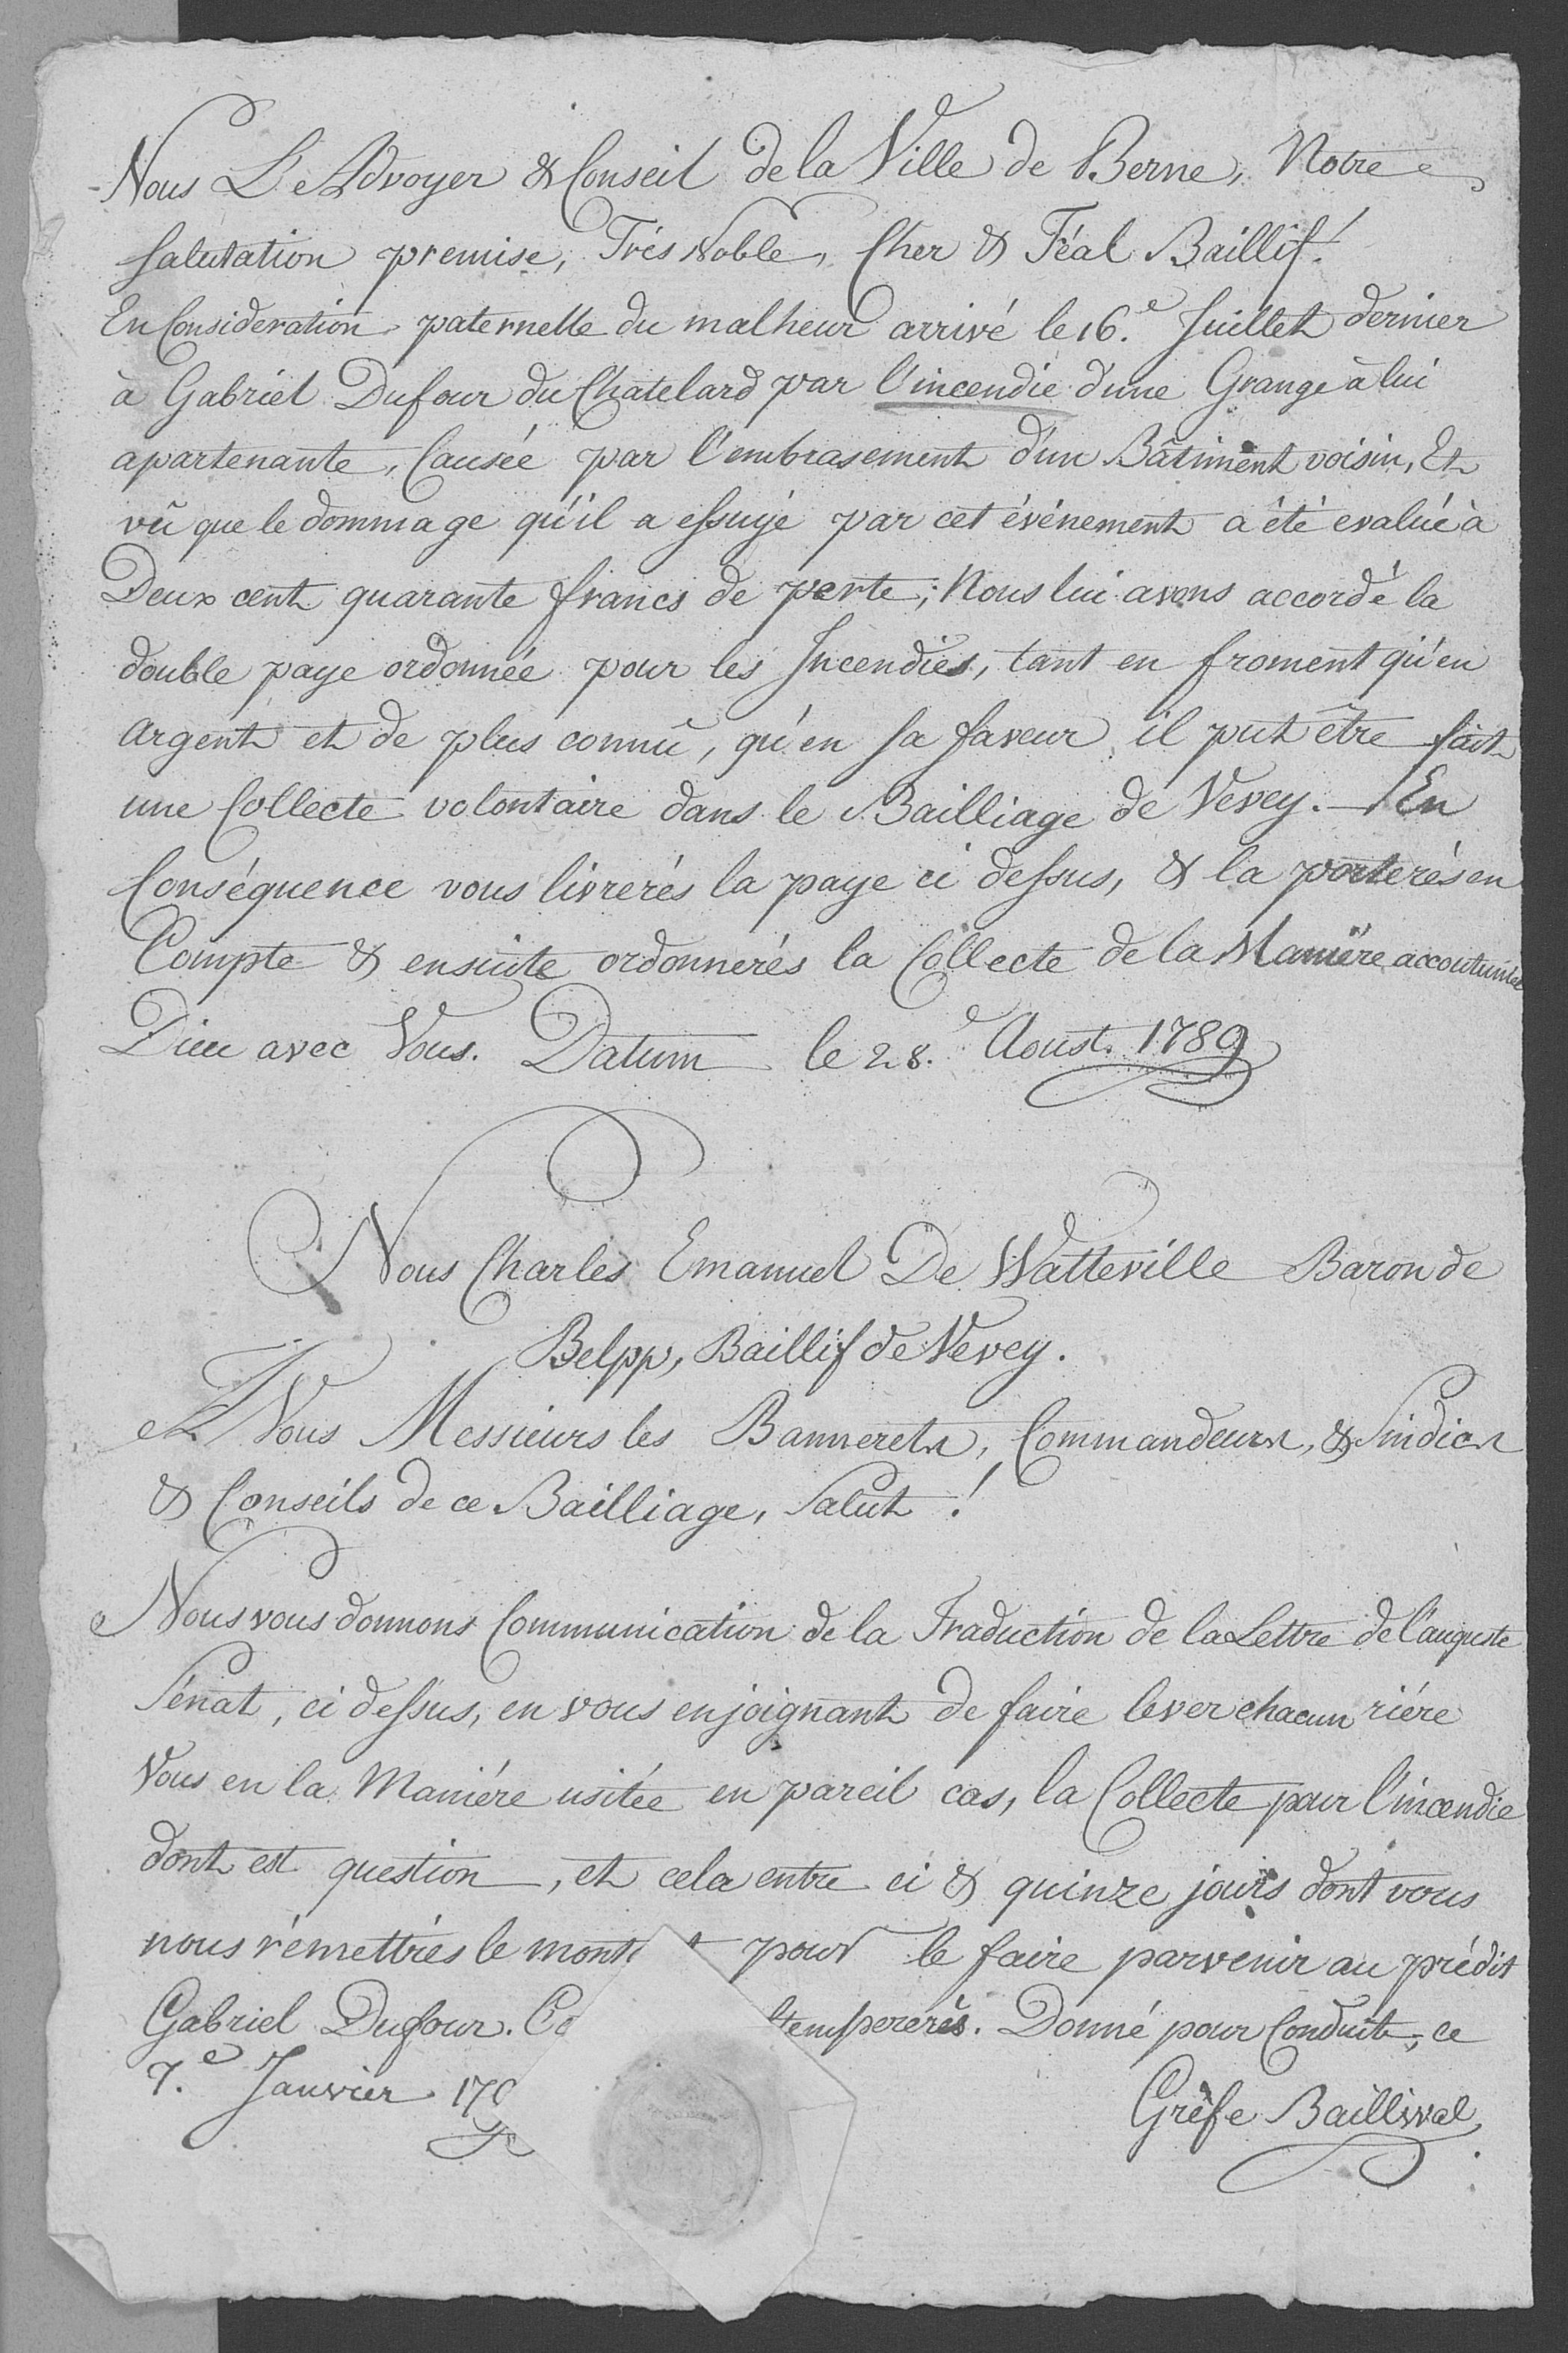 Nous L'Advoyer & Conseil de la Ville de Berne, Notre
salutation premise, Trés Noble, Cher & Féal Baillif!
En Consideration paternelle du malheur arrivé le 16.e Juillet dernier
à Gabriel Dufour du Chatelard par l'incendie d'une Grange à lui
apartenante, Causée par l'embrasement d'un Bâtiment voisin, Et
vû que le dommage qu'il a essuyé par cet événement a été evalué à
Deux cent quarante francs de perte; Nous lui avons accordé la
double paye ordonnée pour les Incendiés, tant en froment qu'en
argent et de plus connû, qu'en sa faveur il put être fait
une Collecte volontaire dans le Bailliage de Vevey. — En
Conséquence vous livrerés la paye ci dessus, & la porterés en
Compte & ensuite ordonnerés la Collecte de la Maniére accoutumée
Dieu avec Vous. Datum le 28.e Aoust. 1789
Nous Charles Emanuel De Watteville Baron de
Belpp, Baillif de Vevey.
A Vous Messieurs les Bannerets, Commandeurs, & Sindics
& Conseils de ce Bailliage, Salut!
Nous vous donnons Communication de la Traduction de la Lettre de l'auguste
Sénat, ci dessus, en vous enjoignant de faire lever chacun riére
Vous en la Maniére usitée en pareil cas, la Collecte pour l'incendie
dont est question, et cela entre ci & quinze jours dont vous
nous rémettrés le mont t pour le faire parvenir au prédit
Gabriel Dufour. Co tempererés. Donné pour Conduite, ce
7.e Janvier 179
Gréfe Baillival